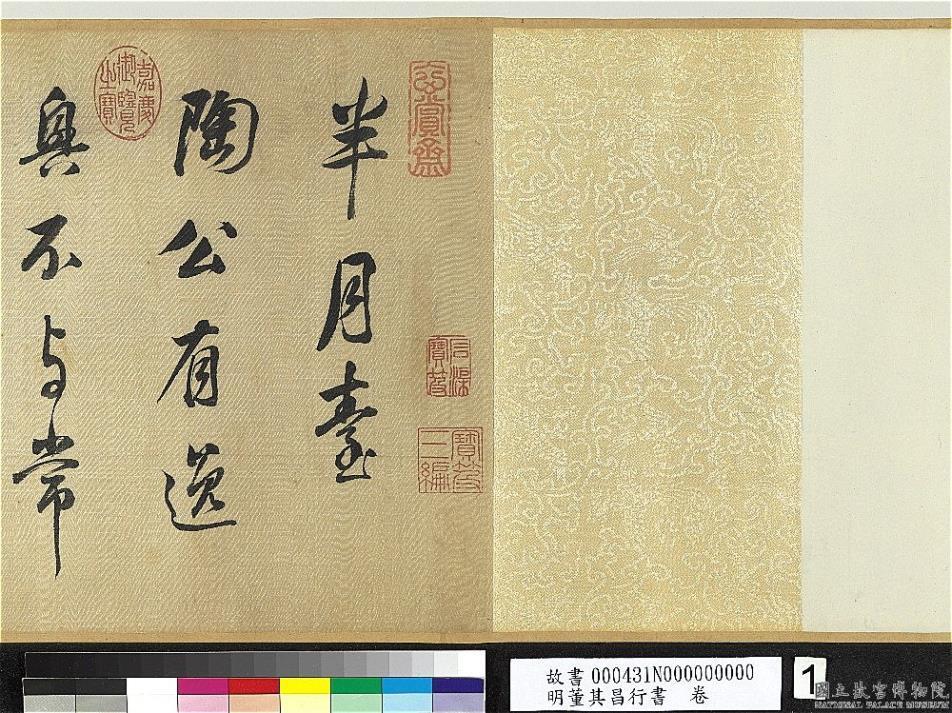 半月臺
陶公有逸
興不与常
嘉慶御覽之寶
石渠寶笈
寶笈三編
故書 000431N000000000
明董其昌行書 卷
1
國立故宮博物院
NATIONAL PALACE MUSEUM